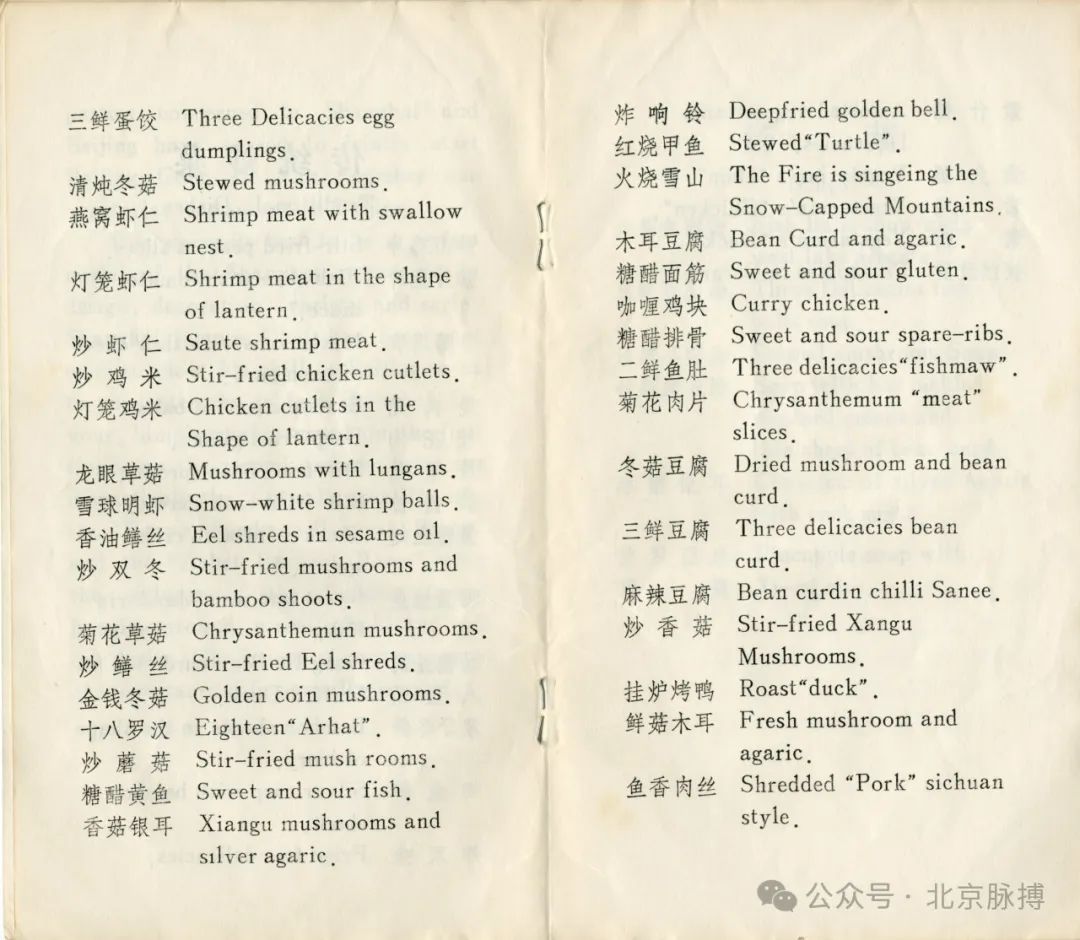 三鲜蛋饺 Three Delicacies egg
dumplings.
清炖冬菇 Stewed mushrooms.
燕窝虾仁 Shrimp meat with swallow
nest.
灯笼虾仁 Shrimp meat in the shape
of lantern.
炒虾仁 Saute shrimp meat.
炒鸡米 Stir-fried chicken cutlets.
灯笼鸡米 Chicken cutlets in the
Shape of lantern.
龙眼草菇 Mushrooms with lungans.
雪球明虾 Snow-white shrimp balls.
香油鳝丝 Eel shreds in sesame oil.
炒双冬 Stir-fried mushrooms and
bamboo shoots.
菊花草菇 Chrysanthemun mushrooms.
炒鳝丝 Stir-fried Eel shreds.
金钱冬菇 Golden coin mushrooms.
十八罗汉 Eighteen“Arhat”.
炒蘑菇 Stir-fried mush rooms.
糖醋黄鱼 Sweet and sour fish.
香菇银耳 Xiangu mushrooms and
silver agaric.
炸响铃 Deepfried golden bell.
红烧甲鱼 Stewed“Turtle”.
火烧雪山 The Fire is singeing the
Snow-Capped Mountains.
木耳豆腐 Bean Curd and agaric.
糖醋面筋 Sweet and sour gluten.
咖喱鸡块 Curry chicken.
糖醋排骨 Sweet and sour spare-ribs.
二鲜鱼肚 Three delicacies“fishmaw”.
菊花肉片 Chrysanthemum “meat”
slices.
冬菇豆腐 Dried mushroom and bean
curd.
三鲜豆腐 Three delicacies bean
curd.
麻辣豆腐 Bean curdin chilli Sanee.
炒香菇 Stir-fried Xangu
Mushrooms.
挂炉烤鸭 Roast“duck”.
鲜菇木耳 Fresh mushroom and
agaric.
鱼香肉丝 Shredded “Pork” sichuan
style.
公众号·北京脉搏